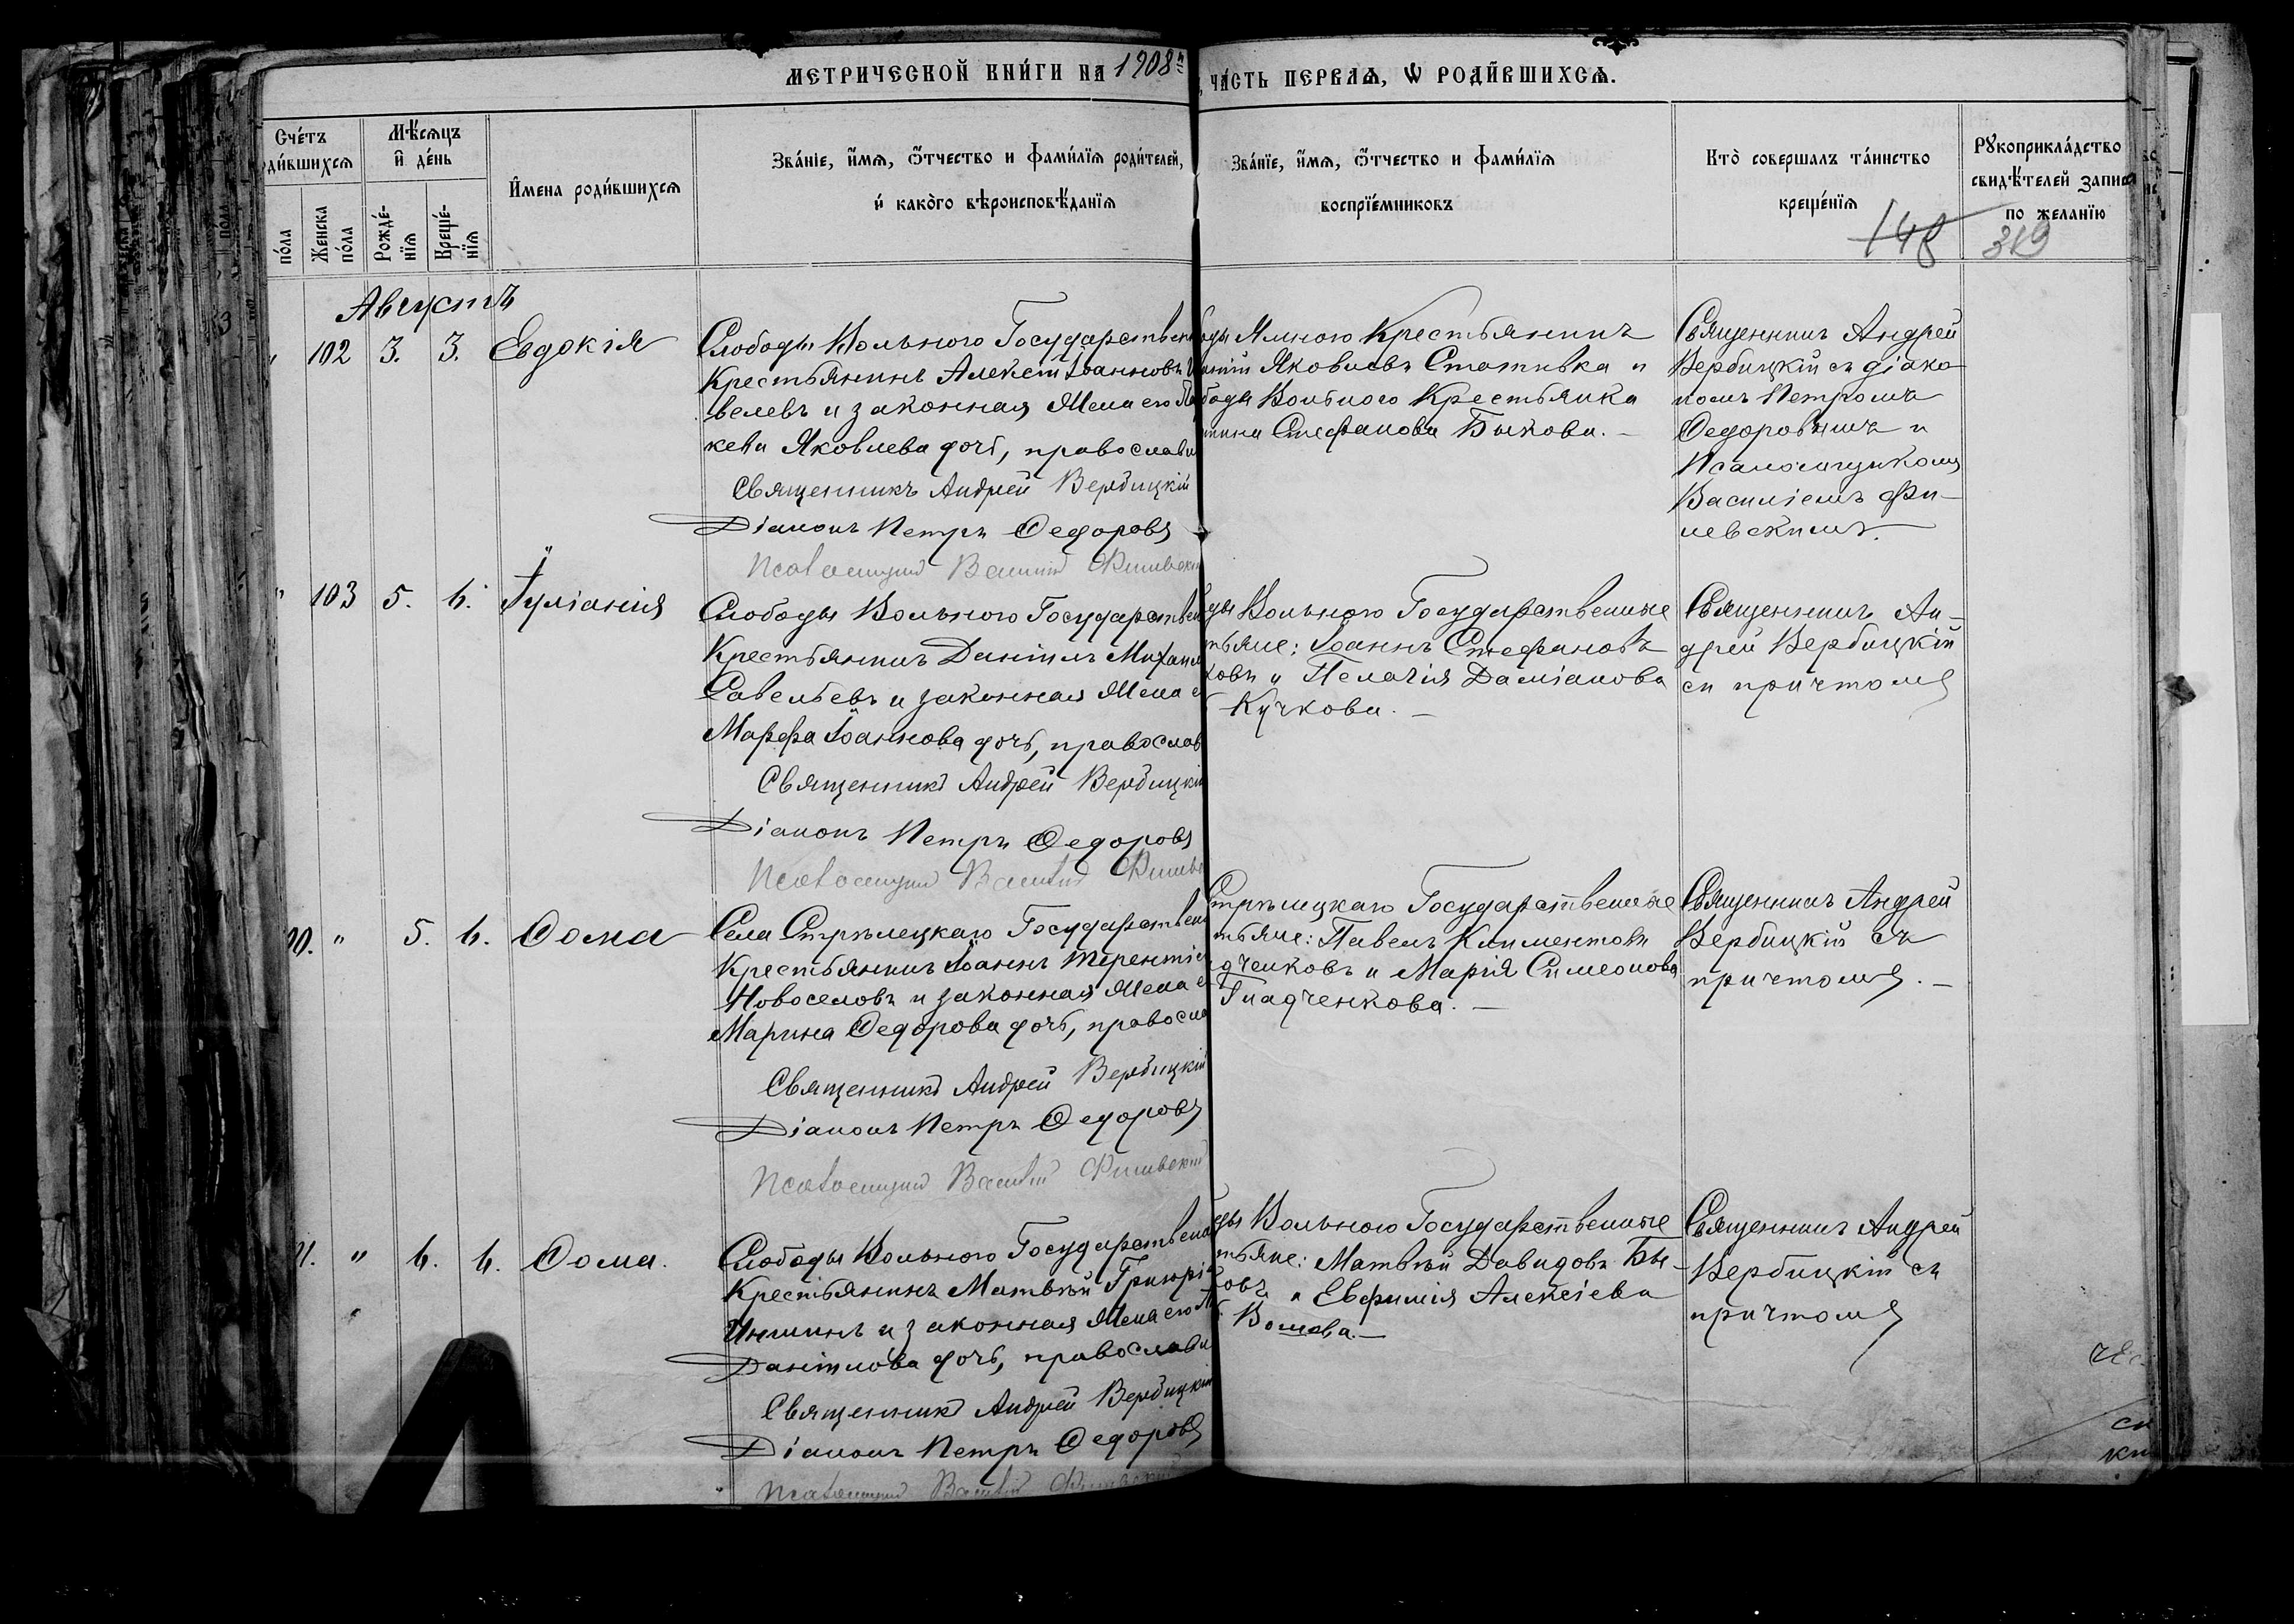 МЕТРИЧЕСКОЙ КНИ́ГИ НА 1908 г.
ЧА́СТЬ ПЕРВАѦ, Ѡ РОДИ́ВШИХСѦ.
Сче́тъ
роди́вшихсѧ
по́ла
Женска по́ла
Мѣ́сѧцъ и де́нь
Рожде́-нїѧ
Креще́-нїѧ
И҆мена роди́вшихсѧ
Зва́нїе, и҆́мѧ, ѻ҆́тчество и фами́лїѧ роди́телей,
и҆ како́го вѣроисповѣ́данїѧ
Зва́нїе, и҆́мѧ, ѻ҆́тчество и фами́лїѧ
воспрїе́мниковъ
Кто̀ соверша́лъ та́инство
креще́нїѧ
Рꙋкоприкла́дство
свидѣ́телей запис
по жела́нїю
148
319
Августъ
102 3. 3. Евдокія
Слободы Вольного Государствен
Крестьянинъ Алексѣй Іоанновъ
велевъ и законная Жена его
Яковлева дочь, православн
Священникъ Андрей Вербицкій
Діаконъ Петръ Ѳедоровъ
Псаломщикъ Василій Филевскій
Ямного Крестьянинъ
Яковлевъ Стативка и
Вольного Крестьянка
Стефанова Быкова.
Священникъ Андрей
Вербицкій съ діако
номъ Петромъ
Ѳедоровымъ и
Псаломщикомъ
Василіемъ Фи-
левскимъ.
" 103 5. 6. Іуліанія
Слободы Вольного Государствен
Крестьянинъ Даніилъ Михаил
Савельевъ и законная Жена е
Марфа Іоаннова дочь, православ
Священникъ Андрей Вербицкій
Діаконъ Петръ Ѳедоровъ
Псаломщикъ Василій Филев
ды Вольного Государственные
тьяне: Іоаннъ Стефановъ
ковъ и Пелагія Даміанова
Кучкова.
Священникъ Ан-
дрей Вербицкій
съ причтомъ
" 5. 6. Ѳома
Села Стрѣлецкаго Государствен
Крестьянинъ Іоаннъ Терентіе
Новоселовъ и законная Жена е
Марина Ѳедорова дочь, правосла
Священникъ Андрей Вербицкій
Діаконъ Петръ Ѳедоровъ
Псаломщикъ Василій Филевскій
Стрѣлецкаго Государственные
тьяне: Павелъ Климентовъ
дченковъ и Марія Симеонова
Гладченкова.
Священникъ Андрей
Вербицкій съ
причтомъ.
" 6. 6. Ѳома.
Слободы Вольного Государствен
Крестьянинъ Матвѣй Григорі
и законная Жена его
Даніилова дочь, православн
Священникъ Андрей Вербицкій
Діаконъ Петръ Ѳедоровъ
Псаломщикъ Василій Филевскій
ды Вольного Государственные
тьяне: Матвѣй Давидовъ Бы-
ковъ и Евфимія Алексіева
Священникъ Андрей
Вербицкій съ
причтомъ